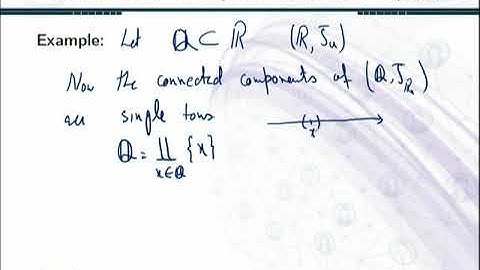 Example: Let ℚ ⊂ ℝ (ℝ, J_u)
Now the connected components of (ℚ, J_ℝ)
are single tons
x
ℚ = ∐ {x}
x∈ℚ